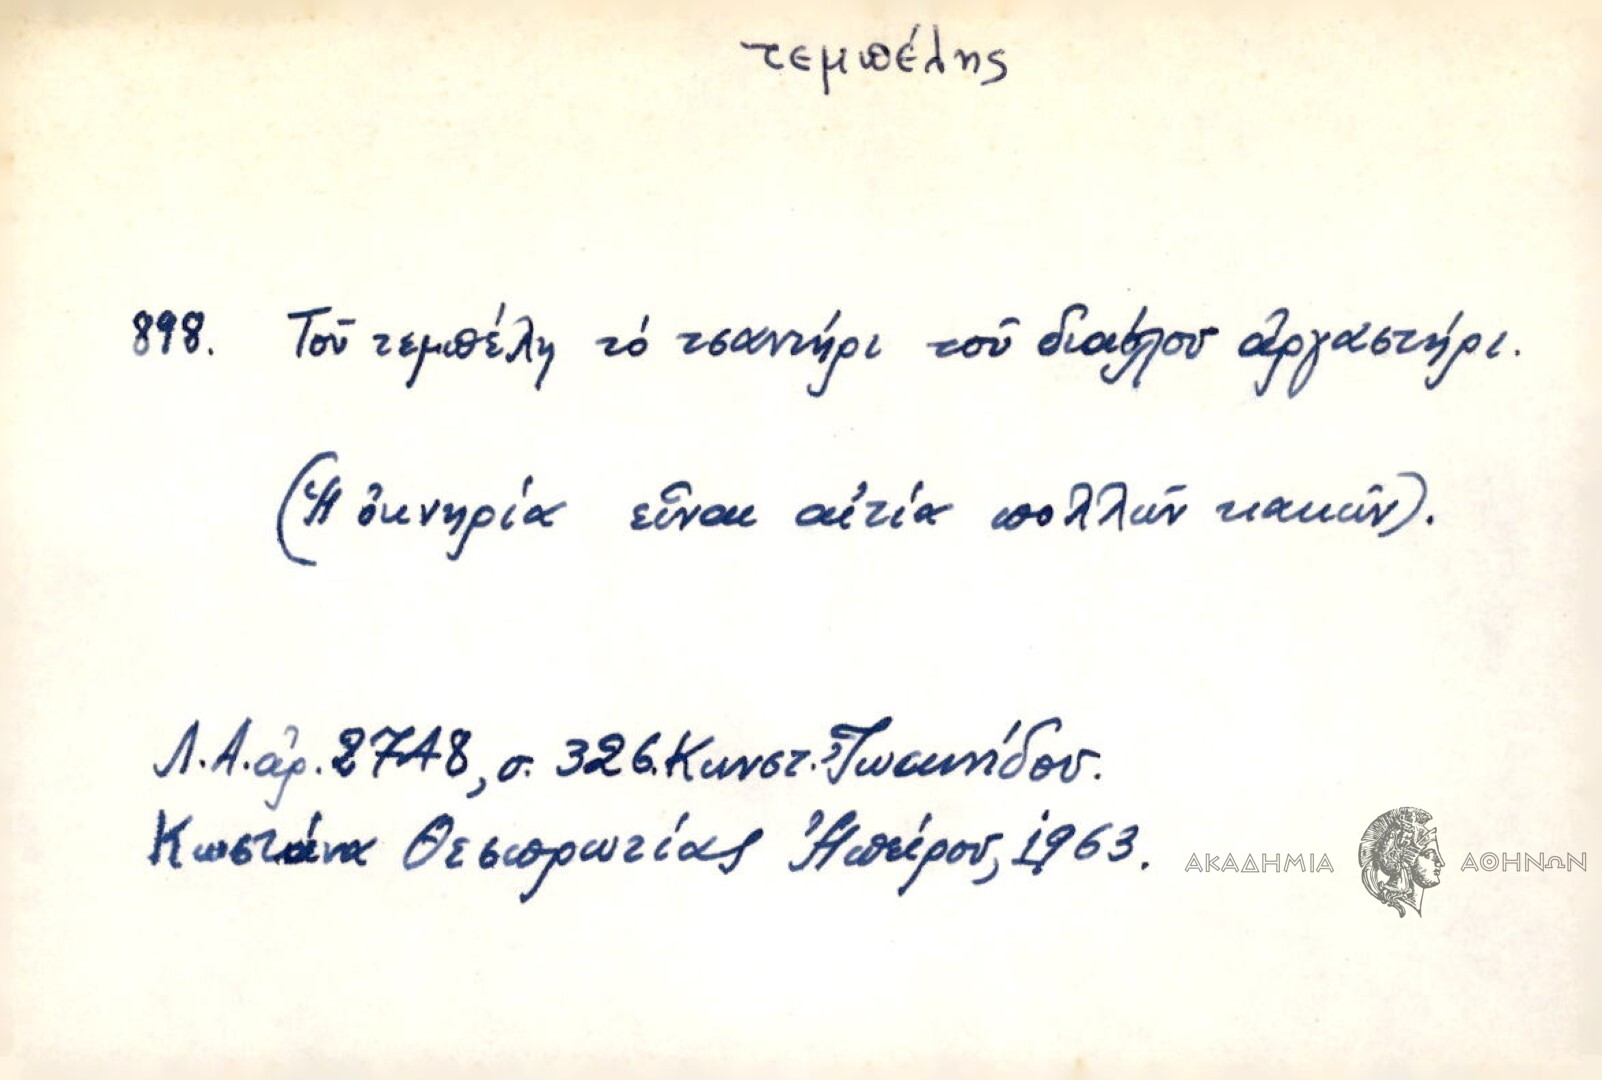 τεμπέλης
898. Τοῦ τεμπέλη τό τσαντήρι τοῦ διαβόλου ἀργαστήρι.
(Ἡ ὀκνηρία εἶναι αἰτία πολλῶν κακῶν).
Λ.Α. ἀρ. 2748, σ. 326. Κωνστ. Ἰωαννίδου.
Κωστάνα Θεσπρωτίας Ἠπείρου, 1963.
ΑΚΑΔΗΜΙΑ ΑΘΗΝΩΝ